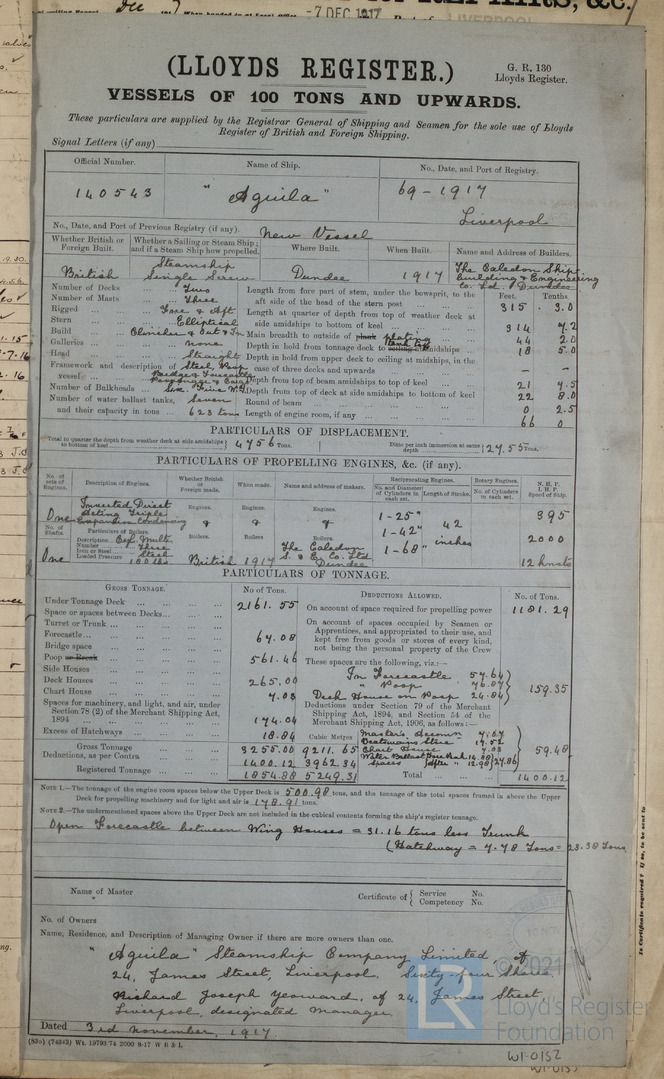 - 7 DEC 1917
LIVERPOOL
(LLOYDS REGISTER.)
G. R. 130
Lloyds Register.
VESSELS OF 100 TONS AND UPWARDS.
These particulars are supplied by the Registrar General of Shipping and Seamen for the sole use of Lloyds
Register of British and Foreign Shipping.
Signal Letters (if any)
Official Number. Name of Ship. No., Date, and Port of Registry.
140543 "Aguila" 69-1917
Liverpool
No., Date, and Port of Previous Registry (if any). New Vessel
Whether British or Foreign Built. Whether a Sailing or Steam Ship; and if a Steam Ship how propelled. Where Built. When Built. Name and Address of Builders.
British Steamship Single Screw Dundee 1917 The Caledon Ship Building & Engineering Co. Ltd. Dundee
Number of Decks Two
Number of Masts Three
Rigged Fore & Aft
Stern Elliptical
Build Clencher & Out & In
Galleries none
Head Straight
Framework and description of vessel Steel
Number of Bulkheads
Number of water ballast tanks, Seven
and their capacity in tons 623 tons
Feet. Tenths.
Length from fore part of stem, under the bowsprit, to the aft side of the head of the stern post 315 . 3.0
Length at quarter of depth from top of weather deck at side amidships to bottom of keel 314 7.2
Main breadth to outside of plank plating 44 2.0
Depth in hold from tonnage deck to ceiling amidships 18 5.0
Depth in hold from upper deck to ceiling at midships, in the case of three decks and upwards — —
Depth from top of beam amidships to top of keel 21 4.5
Depth from top of deck at side amidships to bottom of keel 22 8.0
Round of beam 0 2.5
Length of engine room, if any 66 0
PARTICULARS OF DISPLACEMENT.
Total to quarter the depth from weather deck at side amidships to bottom of keel 4756 Tons. Ditto per inch immersion at same depth 27.55 Tons.
PARTICULARS OF PROPELLING ENGINES, &c. (if any).
No. of sets of Engines. Description of Engines. Whether British or Foreign made. When made. Name and address of makers. Reciprocating Engines. Rotary Engines. N.H.P. I.H.P. Speed of Ship.
No. and Diameter of Cylinders in each set. Length of Stroke. No. of Cylinders in each set.
One Inverted Direct Acting Triple Expansion Condensing
Engines. Engines. Engines.
1-25" 1-42" 1-68" 42 inches 395 2000 12 knots
No. of Shafts. Particulars of Boilers. Boilers. Boilers Boilers.
Description Cyl. Mult.
Number Three
Iron or Steel Steel
Loaded Pressure 180 lbs
One British 1917 The Caledon S. & E. Co. Ltd Dundee
PARTICULARS OF TONNAGE.
GROSS TONNAGE. No. of Tons. DEDUCTIONS ALLOWED. No. of Tons.
Under Tonnage Deck 2161.55
Space or spaces between Decks
Turret or Trunk
Forecastle 64.08
Bridge space
Poop or Break 561.46
Side Houses
Deck Houses 265.00
Chart House 7.03
Spaces for machinery, and light, and air, under Section 78 (2) of the Merchant Shipping Act, 1894 174.04
Excess of Hatchways 18.84 Cubic Metres
Gross Tonnage 3255.00 9211.65
Deductions, as per Contra 1400.12 3962.34
Registered Tonnage 1854.88 5249.31
On account of space required for propelling power 1181.29
On account of spaces occupied by Seamen or Apprentices, and appropriated to their use, and kept free from goods or stores of every kind, not being the personal property of the Crew
These spaces are the following, viz.:—
In Forecastle 57.64
" Poop 76.87
Deck House on Poop 24.84
159.35
Deductions under Section 79 of the Merchant Shipping Act, 1894, and Section 54 of the Merchant Shipping Act, 1906, as follows:—
Master's accom 7.67
Boatswains Store 17.52
Chart House 7.03
Water Ballast
Spaces 12.98 27.86
59.48
Total 1400.12
NOTE 1.—The tonnage of the engine room spaces below the Upper Deck is 500.98 tons, and the tonnage of the total spaces framed in above the Upper
Deck for propelling machinery and for light and air is 178.91 tons.
NOTE 2.—The undermentioned spaces above the Upper Deck are not included in the cubical contents forming the ship's register tonnage.
Open Forecastle between Wing Houses = 31.16 tons less Trunk
(Hatchway = 7.78 Tons = 23.38 Tons
Name of Master Certificate of { Service No. Competency No.
No. of Owners
Name, Residence, and Description of Managing Owner if there are more owners than one.
"Aguila" Steamship Company Limited, of
24, James Street, Liverpool. Sixty-four Shares
Richard Joseph Yeoward, of 24, James Street,
Liverpool, designated manager
Dated 3rd November, 1917.
(89o) (74343) Wt. 19793/74 2000 8-17 W B & L
© 2021
LR
Lloyd's Register
Foundation
W1-0132